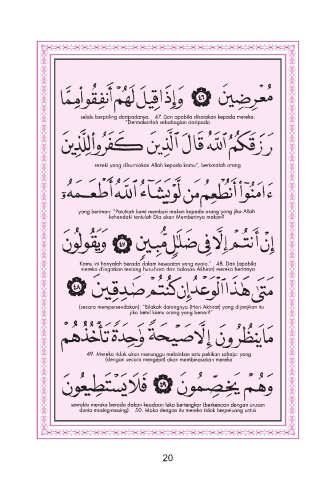 مُعْرِضِينَ ﴿٤٦﴾ وَإِذَا قِيلَ لَهُمْ أَنفِقُوا۟ مِمَّا
selalu berpaling daripadanya. 47. Dan apabila dikatakan kepada mereka:
"Dermakanlah sebahagian daripada
رَزَقَكُمُ ٱللَّهُ قَالَ ٱلَّذِينَ كَفَرُوا۟ لِلَّذِينَ
rezeki yang dikurniakan Allah kepada kamu", berkatalah orang
ءَامَنُوٓا۟ أَنُطْعِمُ مَن لَّوْ يَشَآءُ ٱللَّهُ أَطْعَمَهُۥٓ
yang beriman: "Patutkah kami memberi makan kepada orang yang jika Allah
kehendaki tentulah Dia akan memberinya makan?
إِنْ أَنتُمْ إِلَّا فِى ضَلَـٰلٍ مُّبِينٍ ﴿٤٧﴾ وَيَقُولُونَ
Kamu ini hanyalah berada dalam kesesatan yang nyata." 48. Dan (apabila
mereka diingatkan tentang huruhara dan balasan Akhirat) mereka bertanya
مَتَىٰ هَـٰذَا ٱلْوَعْدُ إِن كُنتُمْ صَـٰدِقِينَ ﴿٤٨﴾
(secara mempersendakan): "Bilakah datangnya (Hari Akhirat) yang dijanjikan itu
jika betul kamu orang yang benar?"
مَا يَنظُرُونَ إِلَّا صَيْحَةً وَٰحِدَةً تَأْخُذُهُمْ
49. Mereka tidak akan menunggu melainkan satu pekikan sahaja: yang
(dengan secara mengejut) akan membinasakan mereka
وَهُمْ يَخِصِّمُونَ ﴿٤٩﴾ فَلَا يَسْتَطِيعُونَ
sewaktu mereka berada dalam keadaan leka bertengkar (berkenaan dengan urusan
dunia masing-masing). 50. Maka dengan itu mereka tidak berpeluang untuk
20